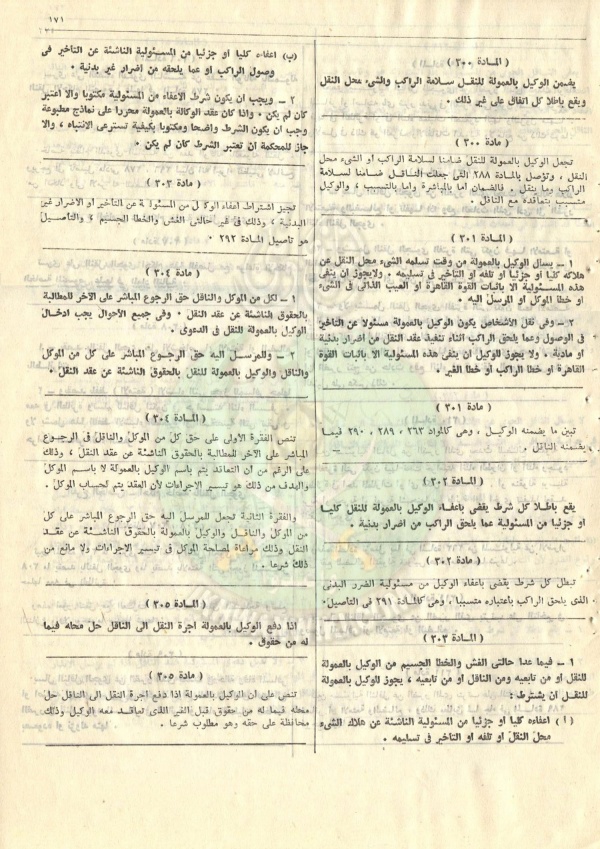 ١٧١
( المادة ٣٠٠ )
يضمن الوكيل بالعمولة للنقل سلامة الراكب والشىء محل النقل
ويقع باطلا كل اتفاق على غير ذلك .
( مادة ٣٠٠ )
تجعل الوكيل بالعمولة للنقل ضامنا لسلامة الراكب او الشىء محل
النقل ، وتؤصل بالمادة ٢٨٨ التى جعلت الناقل ضامنا لسلامة
الراكب وما ينقل . فالضمان اما بالمباشرة واما بالتسبيب ، والوكيل
متسبب بتعاقده مع الناقل .
( المادة ٣٠١ )
١ - يسأل الوكيل بالعمولة من وقت تسلمه الشىء محل النقل عن
هلاكه كليا أو جزئيا أو تلفه أو التأخير فى تسليمه . ولايجوز ان ينفى
هذه المسئولية الا باثبات القوة القاهرة أو العيب الذاتى فى الشىء
او خطا الموكل او المرسل اليه .
٢ - وفى نقل الأشخاص يكون الوكيل بالعمولة مسئولا عن التأخير
فى الوصول وعما يلحق الراكب اثناء تنفيذ عقد النقل من اضرار بدنية
او مادية . ولا يجوز للوكيل ان ينفى هذه المسئولية الا باثبات القوة
القاهرة او خطا الراكب او خطا الغير .
( مادة ٣٠١ )
تبين ما يضمنه الوكيل ، وهى كالمواد ٢٦٣ ، ٢٨٩ ، ٢٩٠ فيما
يضمنه الناقل .
( المادة ٣٠٢ )
يقع باطلا كل شرط يقضى باعفاء الوكيل بالعمولة للنقل كليا
أو جزئيا من المسئولية عما يلحق الراكب من اضرار بدنية .
( مادة ٣٠٢ )
تبطل كل شرط يقضى باعفاء الوكيل من مسئولية الضرر البدنى
الذى يلحق الراكب باعتباره متسببا . وهى كالمادة ٢٩١ فى التأصيل .
( المادة ٣٠٣ )
١ - فيما عدا حالتى الغش والخطا الجسيم من الوكيل بالعمولة
للنقل او من تابعيه ومن الناقل او من تابعيه ، يجوز للوكيل بالعمولة
للنقل ان يشترط :
( أ ) اعفاءه كليا او جزئيا من المسئولية الناشئة عن هلاك الشىء
محل النقل او تلفه او التاخير فى تسليمه .
(ب) اعفاءه كليا أو جزئيا من المسئولية الناشئة عن التأخير فى
وصول الراكب او عما يلحقه من أضرار غير بدنية .
٢ - ويجب ان يكون شرط الاعفاء من المسئولية مكتوبا والا اعتبر
كان لم يكن . واذا كان عقد الوكالة بالعمولة محررا على نماذج مطبوعة
وجب ان يكون الشرط واضحا ومكتوبا بكيفية تسترعى الانتباه ، والا
جاز للمحكمة ان تعتبر الشرط كان لم يكن .
( مادة ٣٠٣ )
تجيز اشتراط اعفاء الوكيل من المسئولية عن التأخير او الاضرار غير
البدنية ، وذلك فى غير حالتى الغش والخطا الجسيم ، والتأصيل
هو تأصيل المادة ٢٩٢ .
( المادة ٣٠٤ )
١ - لكل من الموكل والناقل حق الرجوع المباشر على الآخر للمطالبة
بالحقوق الناشئة عن عقد النقل . وفى جميع الأحوال يجب ادخال
الوكيل بالعمولة للنقل فى الدعوى .
٢ - وللمرسل اليه حق الرجوع المباشر على كل من الموكل
والناقل والوكيل بالعمولة للنقل بالحقوق الناشئة عن عقد النقل .
( المادة ٣٠٤ )
تنص الفقرة الأولى على حق كل من الموكل والناقل فى الرجوع
المباشر على الآخر للمطالبة بالحقوق الناشئة عن عقد النقل ، وذلك
على الرغم من ان التعاقد يتم باسم الوكيل بالعمولة لا باسم الموكل
والهدف من ذلك هو تيسير الاجراءات لأن العقد يتم لحساب الموكل .
والفقرة الثانية تجعل للمرسل اليه حق الرجوع المباشر على كل
من الموكل والناقل والوكيل بالعمولة بالحقوق الناشئة عن عقد
النقل وذلك مراعاة لمصلحة الموكل فى تيسير الاجراءات ولا مانع من
ذلك شرعا .
( المادة ٣٠٥ )
اذا دفع الوكيل بالعمولة اجرة النقل الى الناقل حل محله فيما
له من حقوق .
( مادة ٣٠٥ )
تنص على ان الوكيل بالعمولة اذا دفع اجرة النقل الى الناقل حل
محله فيما له من حقوق قبل الغير الذى تعاقد معه الوكيل وذلك
محافظة على حقه وهو مطلوب شرعا .